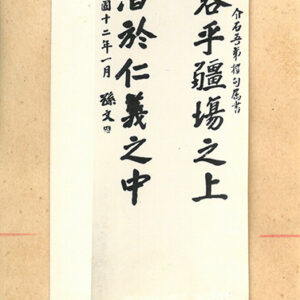 介石吾弟撰句属書
容乎疆場之上
於仁義之中
國十二年一月 孫文